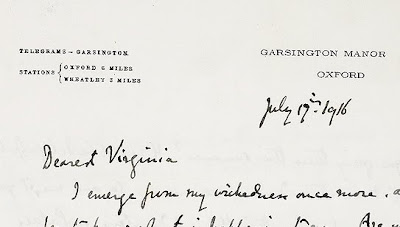 TELEGRAMS – GARSINGTON
STATIONS { OXFORD 6 MILES
WHEATLEY 3 MILES
GARSINGTON MANOR
OXFORD
July 17th 1916
Dearest Virginia
I emerge from my wickedness once more,